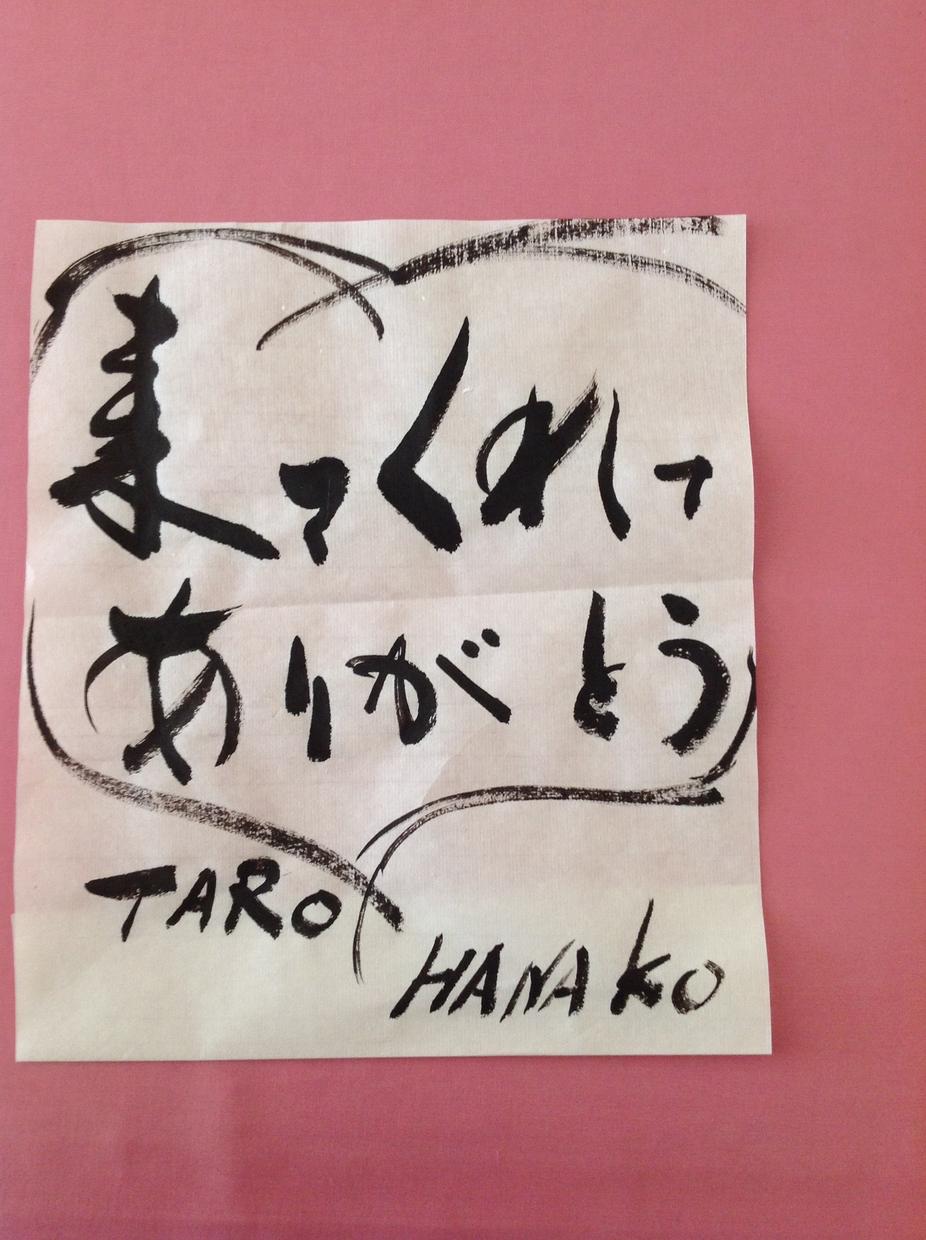 来てくれて
ありがとう
TARO
HANAKO